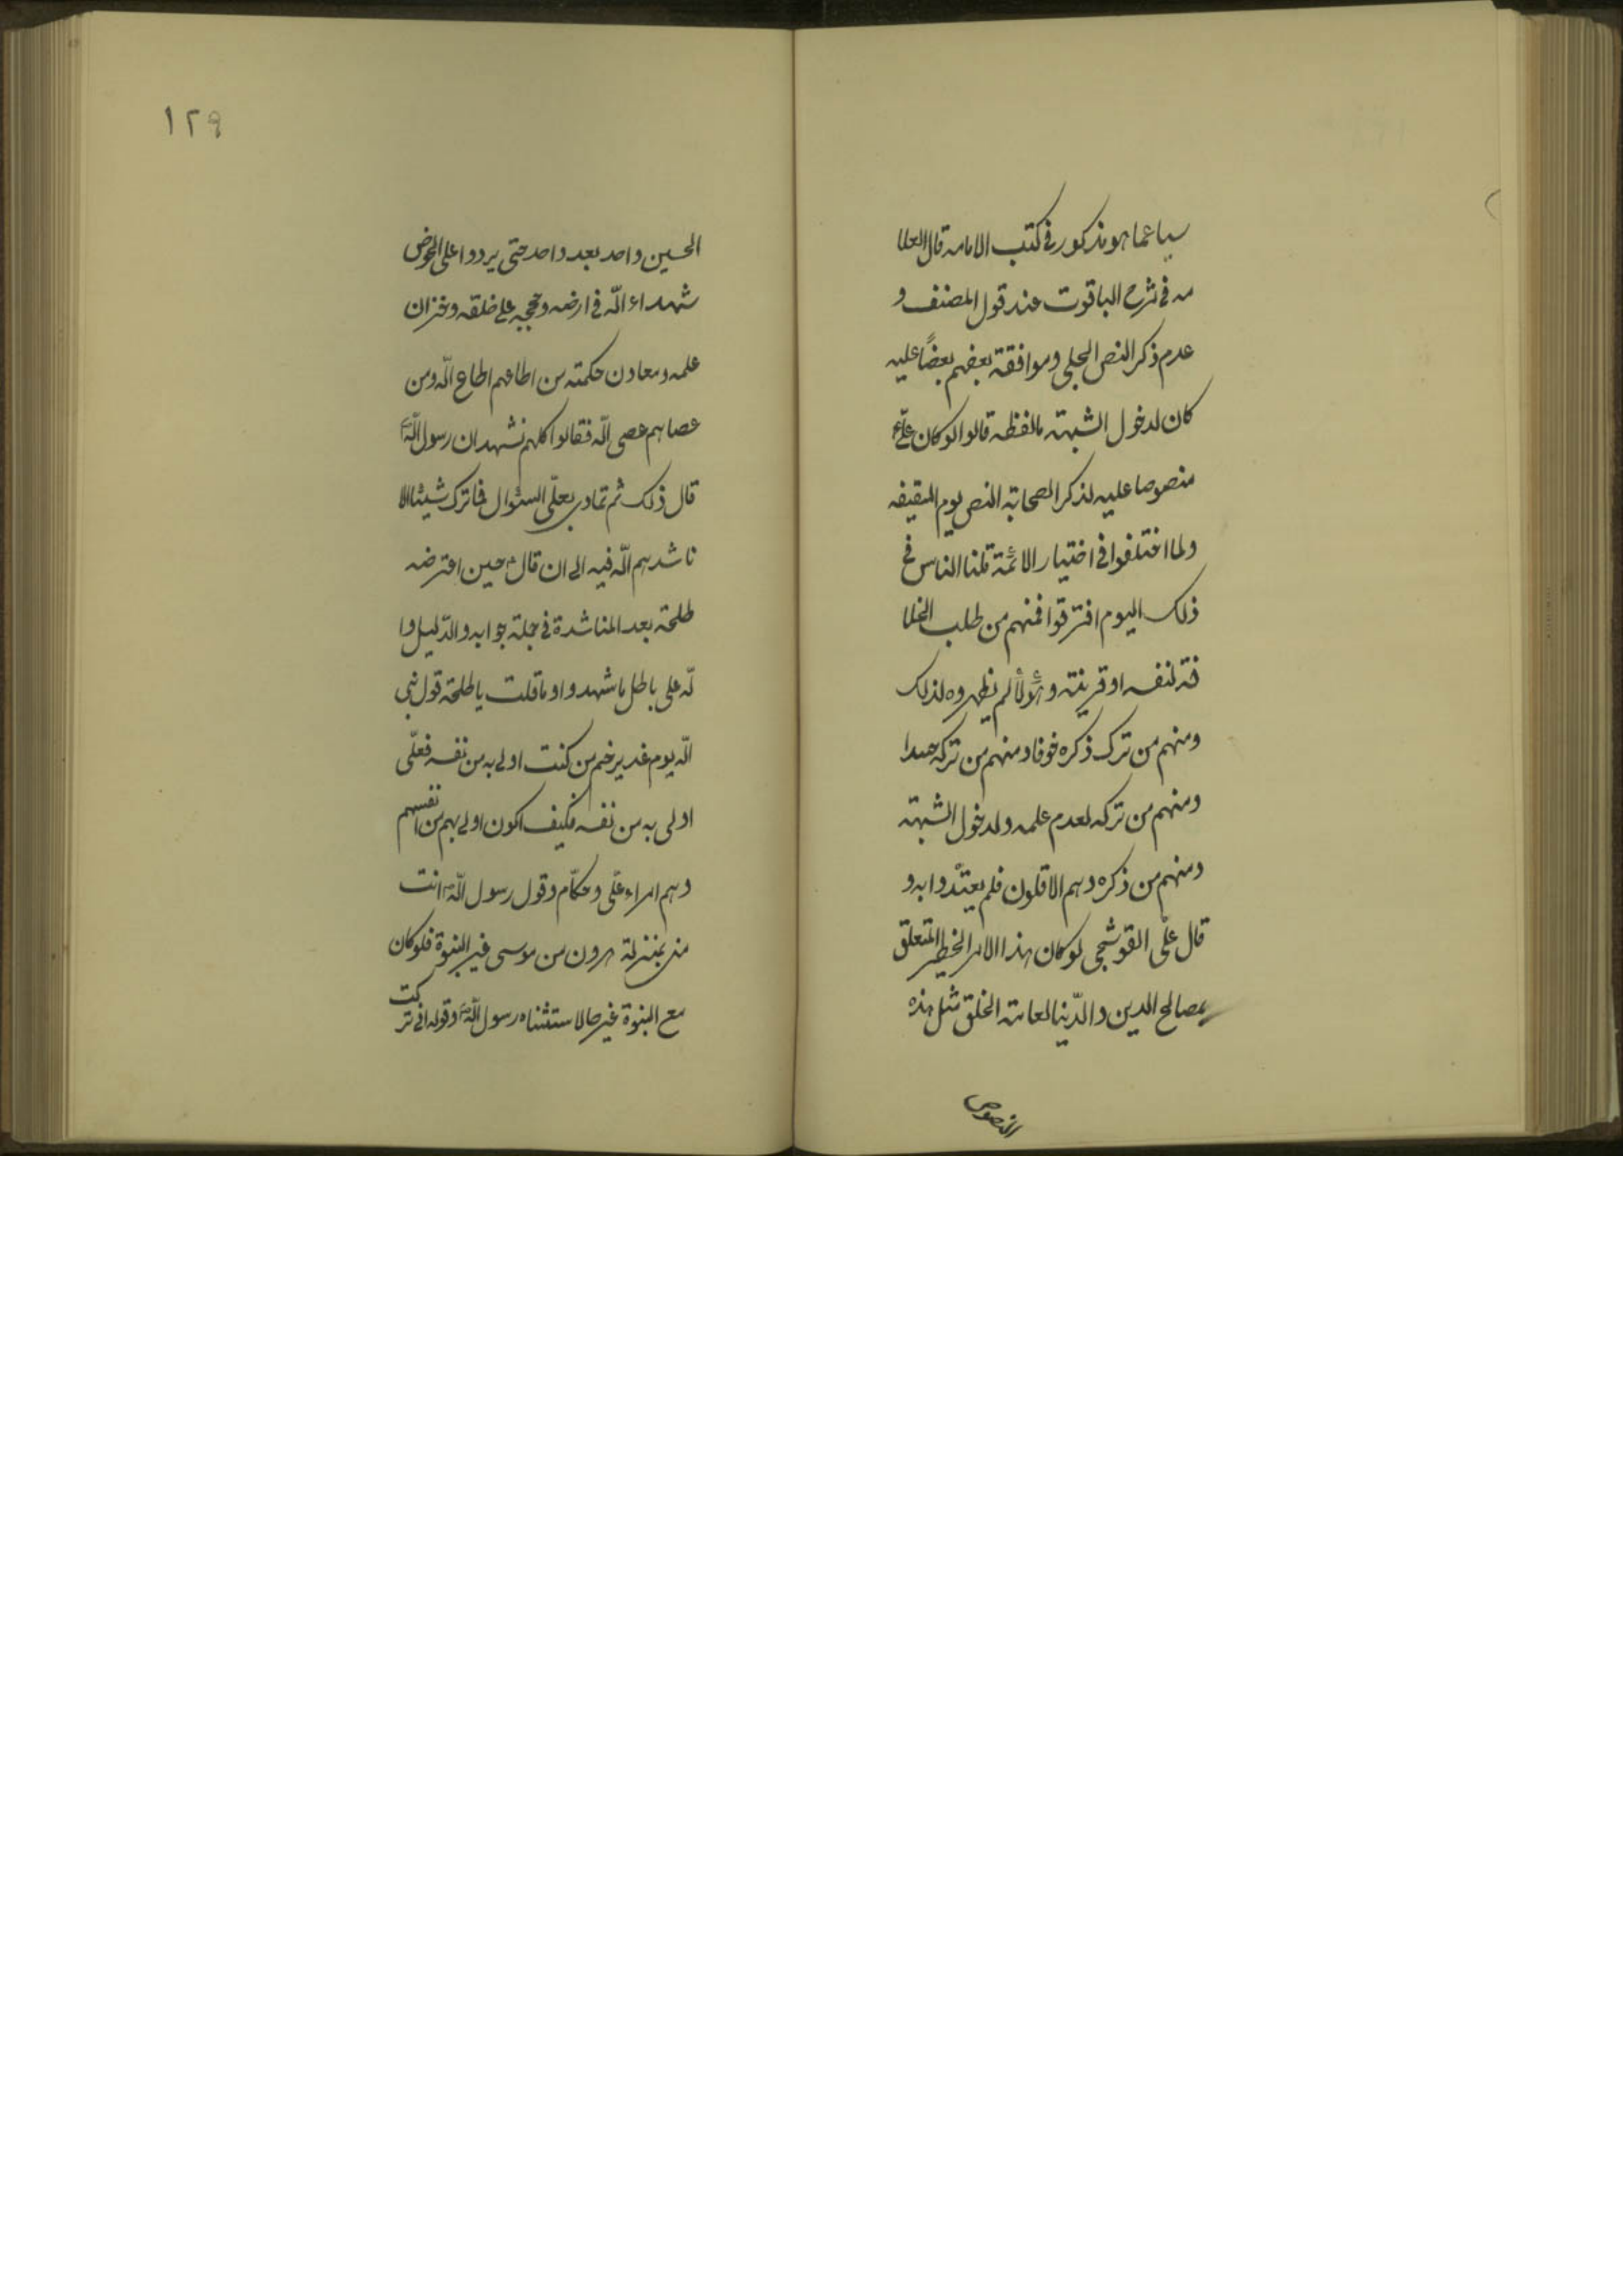 سيما عما هو مذكور في كتب الامامه قال العلا
مه في شرح الياقوت عند قول المصنف و
عدم ذكر النص الجلي وموافقة بعضهم بعضًا عليه
كان لدخول الشبهته قالوا لو كان علیّ ع
منصوصا عليه لذكر الصحابة النص يوم السقيفه
ولما اختلفوا في اختيار الائمّة قلنا الناس في
ذلك اليوم افترقوا فمنهم من طلب الخلا
فته لنفسه او قرينته وهؤلاء لم يظهروه لذلك
ومنهم من ترك ذكره خوفا ومنهم من تركه حسدا
ومنهم من تركه لعدم علمه ولدخول الشبهته
ومنهم من ذكره وهم الاقلون فلم يعتدّوا به و
قال علّى القوشجى لو كان هذا الامر الخطير المتعلق
بمصالح الدين والدّنيا لعامته الخلق مثل هذه
النصوص
١٢٩
الحسين واحد بعد واحد حتى يردوا على الحوض
شهداء الله في ارضه وحججه على خلقه وخزان
علمه ومعادن حكمته من اطاعهم اطاع الله ومن
عصاهم عصى الله فقالوا كلهم نشهد ان رسول الله ص
قال ذلك ثم تمادى بعلّى السئوال فما ترك شيئا الا
ناشدهم الله فيه الى ان قال ع حين اعترضه
طلحة بعد المناشدة في جملة جوابه والدّليل وا
لله على باطل ما شهدوا وما قلت يا طلحة قول نبى
الله يوم غدير خم من كنت اولى به من نفسه فعلّى
اولى به من نفسه فكيف اكون اولى بهم من انفسهم
وهم امراء علّى وحكّام وقول رسول الله ص انت
منى بمنزلة هرون من موسى غير النبوة فلو كان
مع النبوة غيرها لاستثناه رسول الله ص وقوله انى تركت